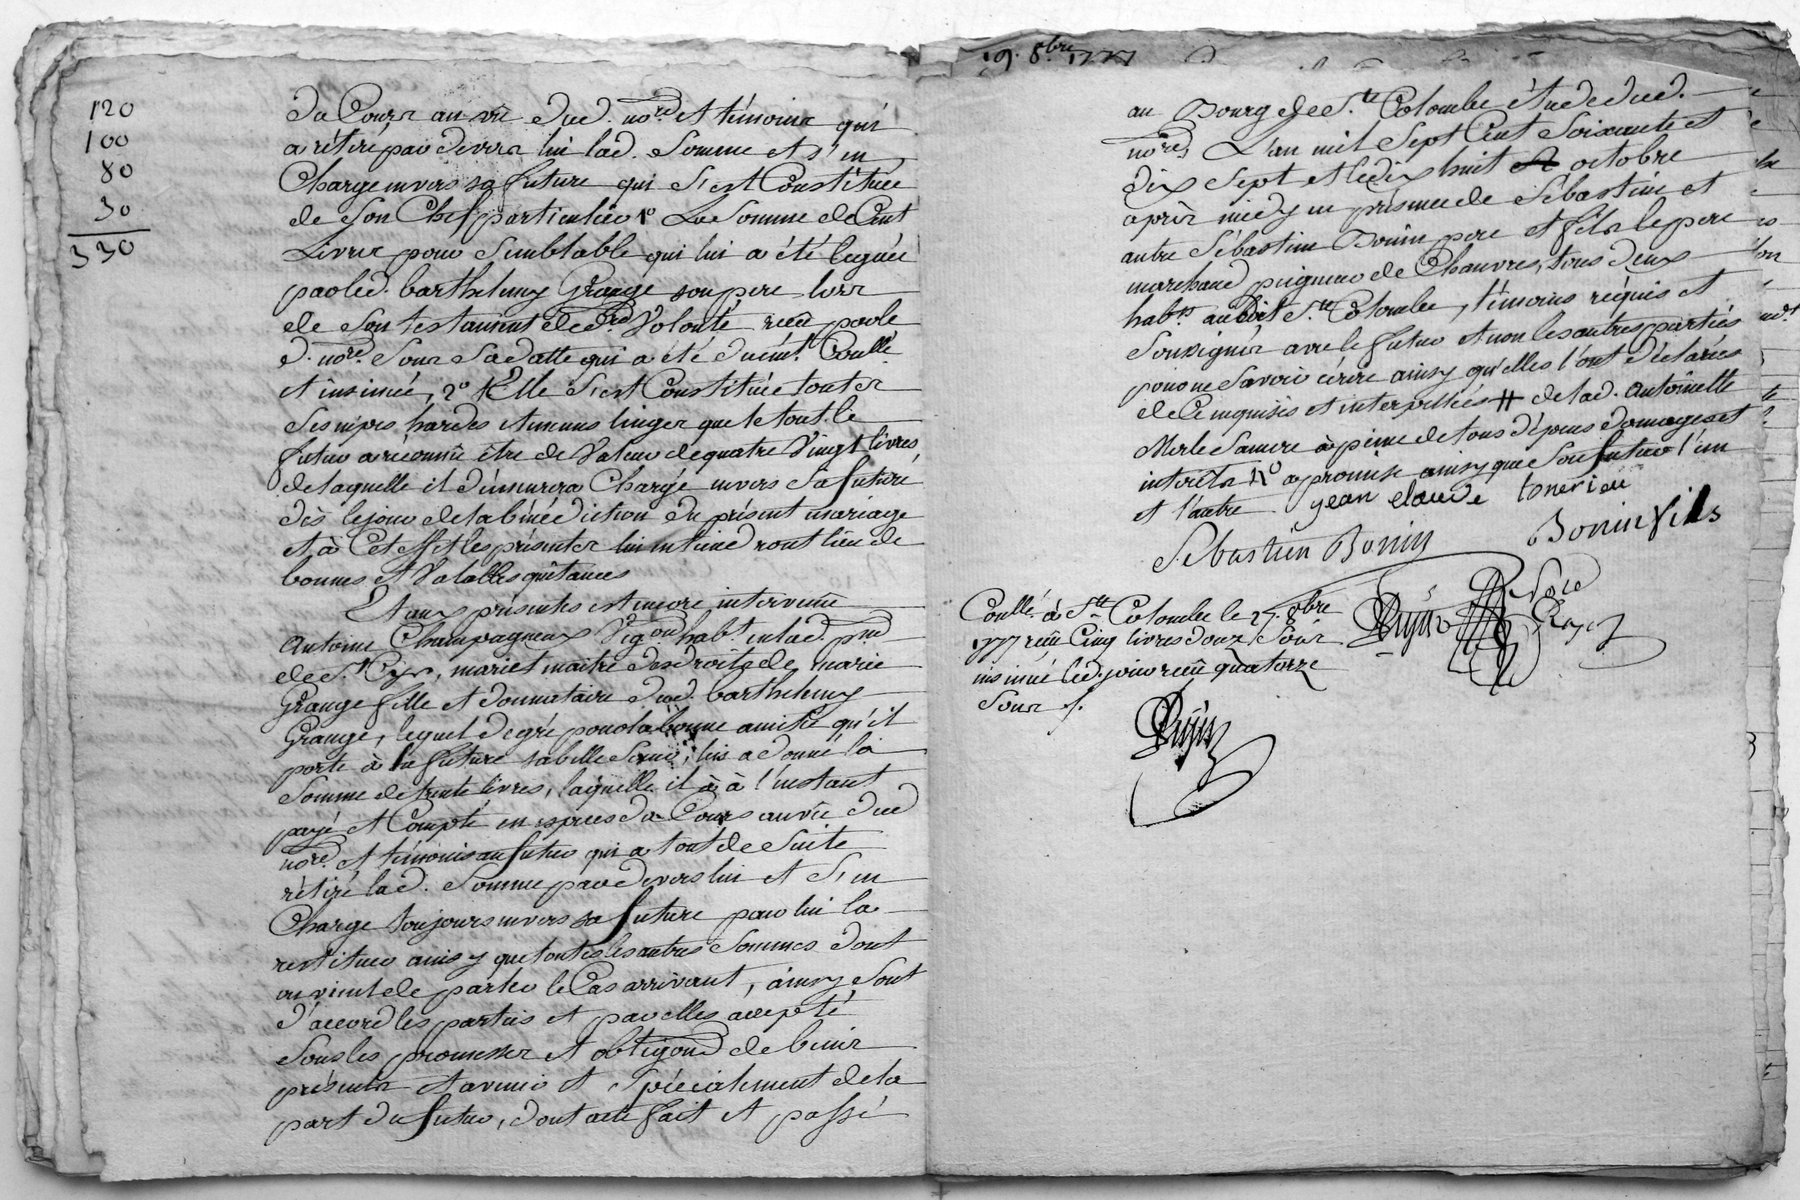 120
100
80
30
330
da Cours au vû dud. no.re et témoins qui
a rétiré par devers lui lad. Somme et s'en
Charge envers sa future qui s'est Constituée
de Son Chef particulier 1° La Somme de Cent
Livres pour Semblable qui lui a été leguée
par led. barthelemy Grange son pere lors
de son testament de d.re Volonté recu par le
d. no.re Sous Sa datte qui a été duem.t Conllé
et insinué, 2° Elle s'est Constituée toutes
Ses nipes hardes et menus linges que le tout le
futur a réconnû être de Valeur de quatre Vingt livres
de laquelle il demeurera Chargé envers Sa future
dès le jour de la bénédiction du présent mariage
et à Cet effet les présentes lui en tiendront lieu de
bonnes et Valables quitances
Et aux présentes est encore intervenû
Antoine Champagneux Vig.on hab.t en lad. p.sse
de S.t Cyr, mari et maitre des droits de marie
Grange fille et donnataire dud. barthelemy
Grange, lequel de gré pour la bonne amitié qu'il
porte à la future sa belle Sœur, lui a donné la
Somme de trente livres, laquelle il a à l'instant
payé et Compté en especes da Cours au vû dud
no.re et témoins au futur qui a tout de Suite
rétiré lad. Somme par devers lui et S'en
Charge toujours envers sa future pour lui la
restituer ainsy que toutes les autres Sommes dont
on vient de parler le Cas arrivant, ainsy Sont
d'accord les parties et par elles accepté
Sous les promesses et obligons de biens
présents et avenir et Spécialement de la
part du futur, dont acte fait et passé
19. 8bre 1777
au Bourg de S.te Colombe étude dud.
no.re, L'an mil Sept Cent Soixante et
dix Sept et le dix huit octobre
après midy en présence de Sébastien et
autre Sébastien Bonin pere et fils le pere
marchand peigneur de Chanvres, tous deux
hab.ts audit S.te Colombe, témoins réquis et
Soussignés avec le futur et non les autres parties
pour ne Savoir écrire ainsy qu'elles l'ont déclarées
de Ce enquises et interpellées # de lad. Antoinette
Merle Sa mere à peine de tous dépens domages et
interêts a promise ainsy que Son futur l'un
et l'autre . jean claude
Sebastien Bonin
Bonin fils
Conllé à S.te Colombe le 27. 8bre
1777 recû Cinq livres douz Sous
insinué led. jour recû quatorze
Sous